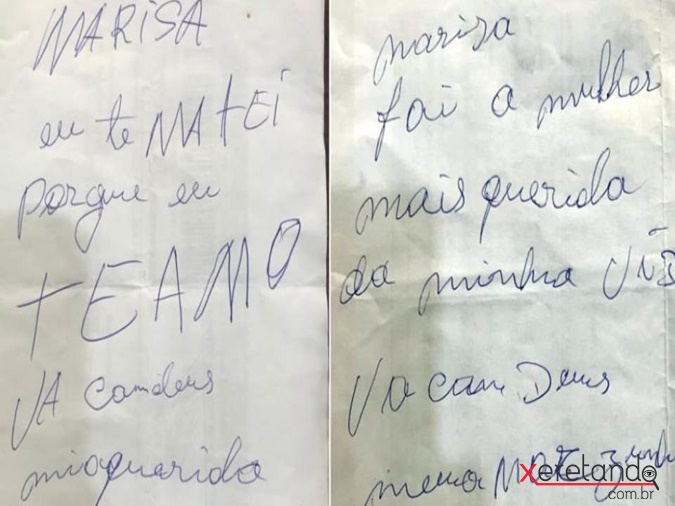 MARISA
eu te MATEI
porque eu
TE AMO
VA com deus
mia querida
marisa
foi a mulher
mais querida
da minha
Va com Deus
Xeretando
.com.br